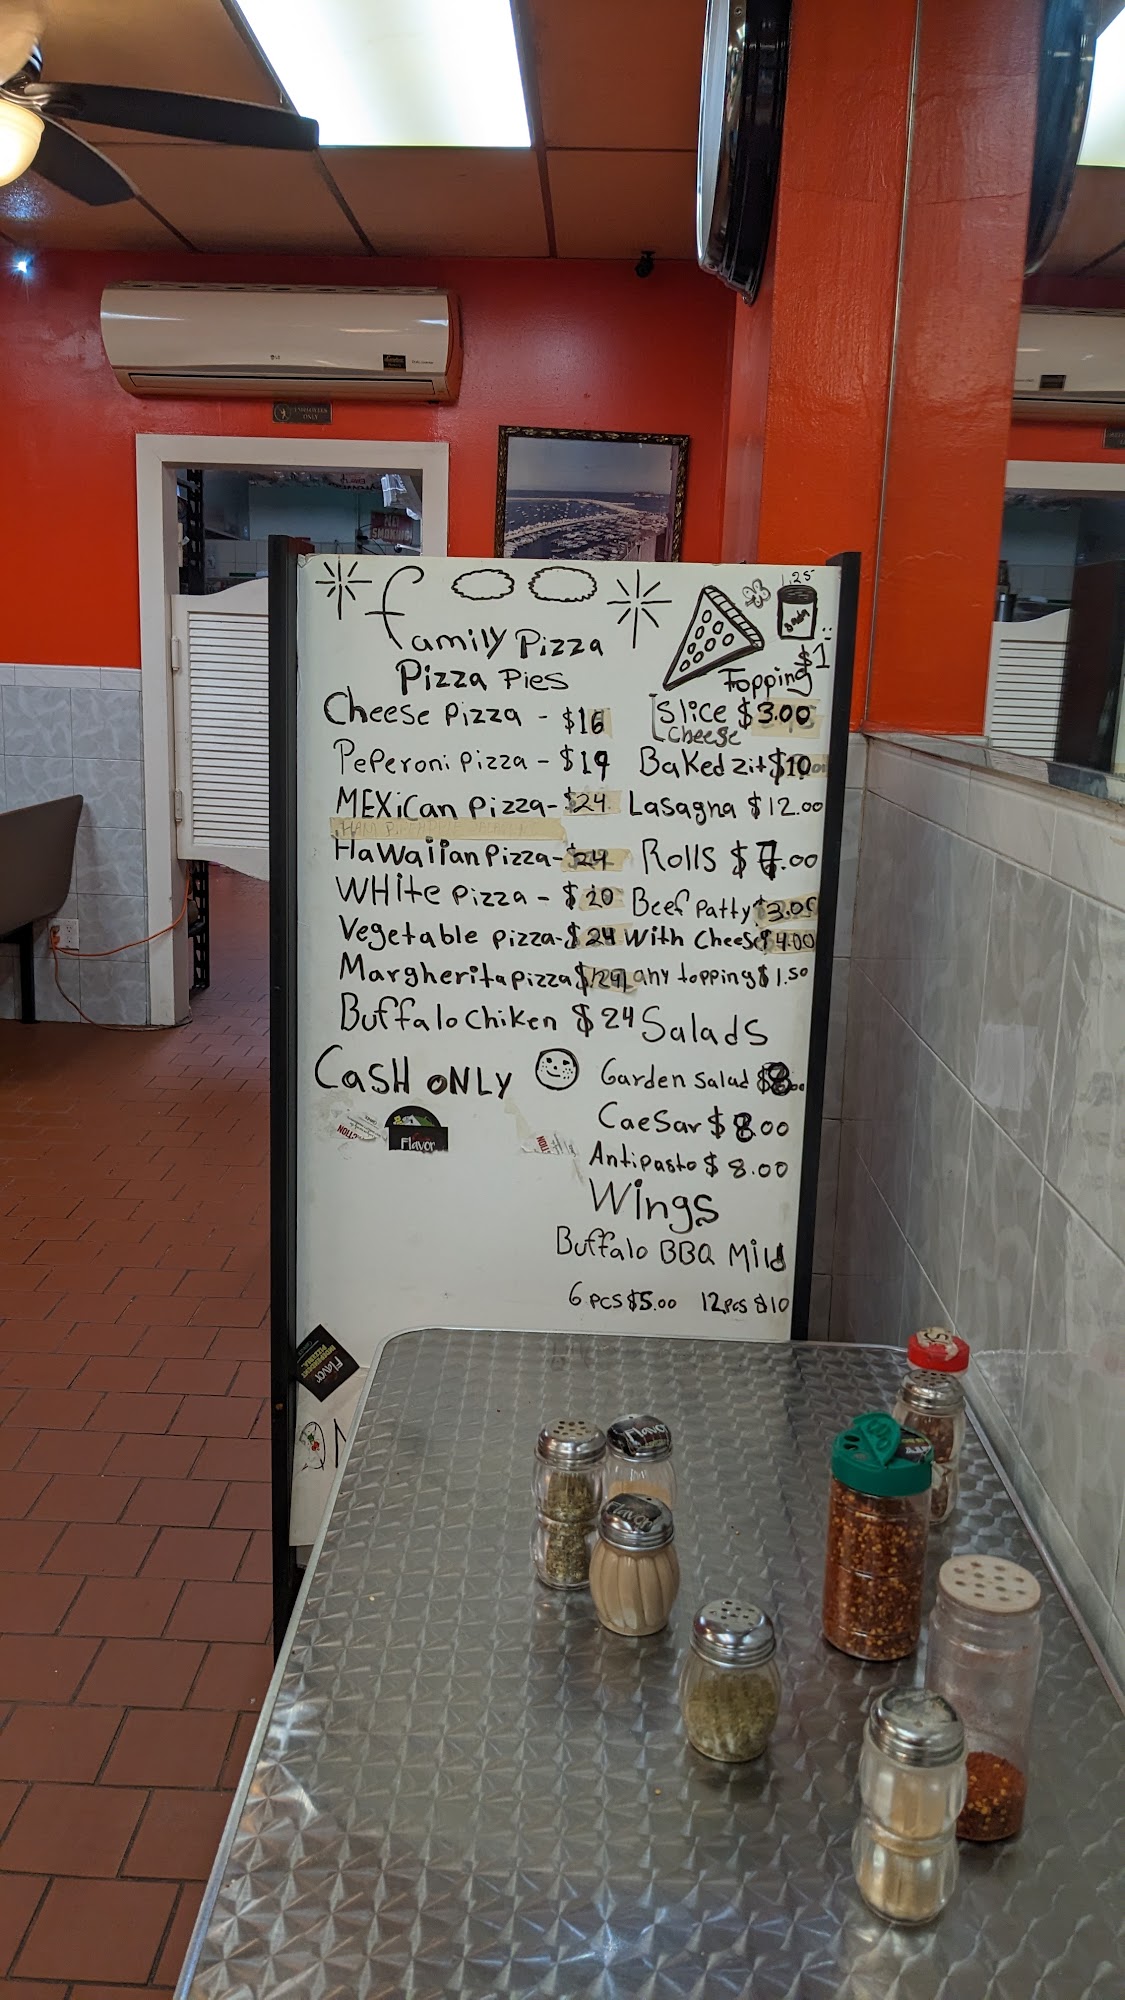 LG
EMPLOYEES
ONLY
NO
SMOKING
Family Pizza
Pizza Pies
Cheese Pizza - $16
PePeroni Pizza - $19
MEXican Pizza - $24
HaWaiianPizza - $24
WHite Pizza - $20
Vegetable Pizza - $24
Margherita Pizza $24
Buffalo Chiken $24
CasH oNLY
Flavor
1.25
Soda
$1
Topping
Slice $3.00
Cheese
Baked zit $10
Lasagna $12.00
Rolls $7.00
Beef Patty $3.00
With Cheese $4.00
any topping $1.50
Salads
Garden Salad $8.00
CaeSar $8.00
Antipasto $8.00
Wings
Buffalo BBQ Mild
6 pcs $5.00 12pcs $10
Flavor
INDEPENDENT
PIZZERIA
Flavor
Flavor